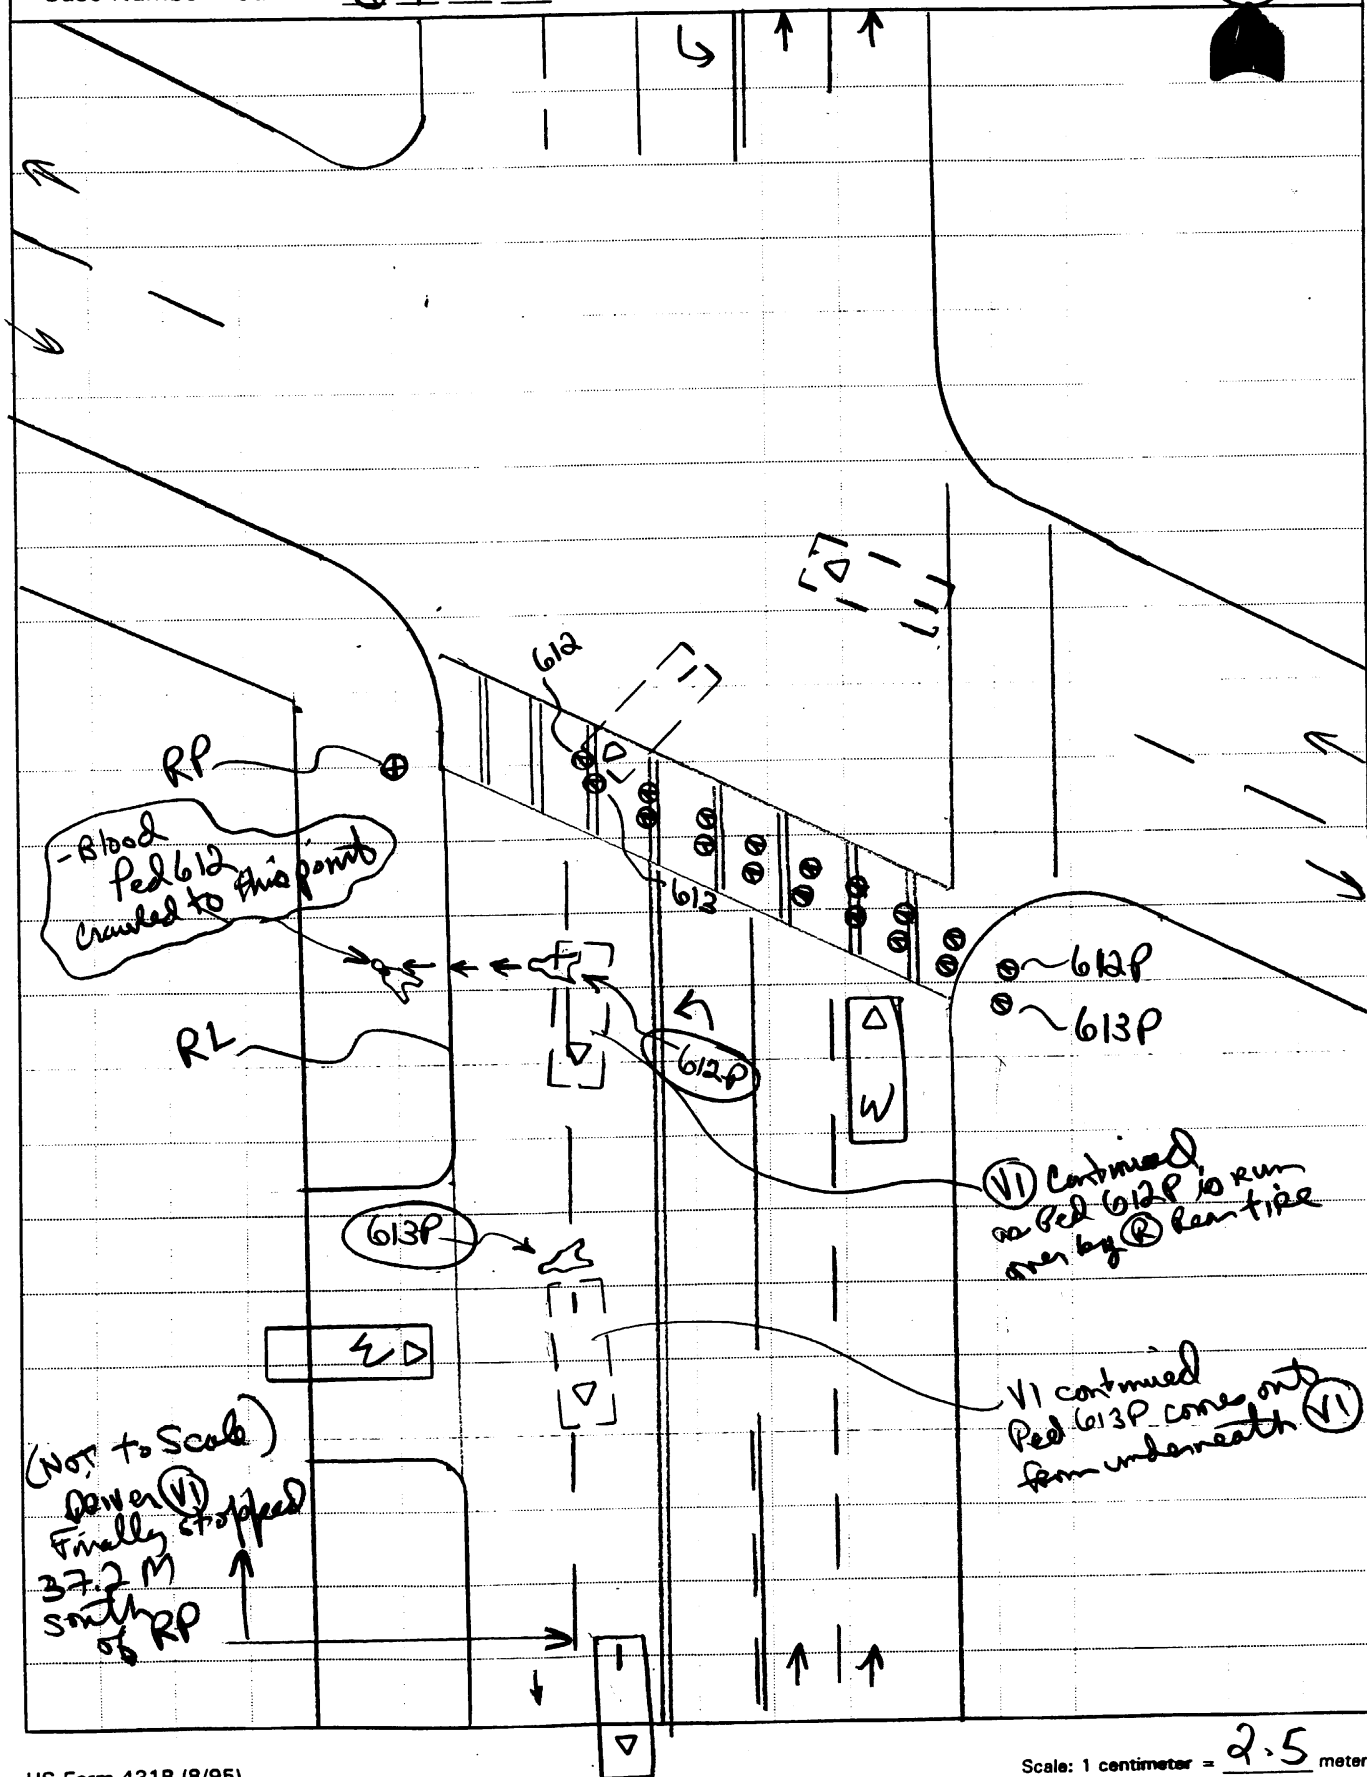 612
RP
- Blood
Ped 612
crawled to this point
612
612P
613P
RL
612P
W
V1 Continued
as Ped 612P is run
over by R Rear tire
613P
W
V1 continued
Ped 613P comes out
from underneath V1
(Not to Scale)
Driver V1
Finally stopped
37.2 M
South
of RP
Scale: 1 centimeter = 2.5 meter